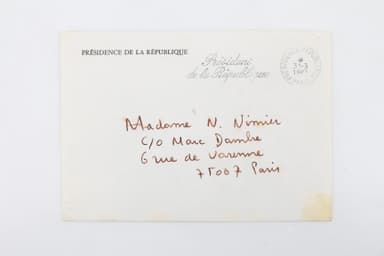 PRÉSIDENCE DE LA RÉPUBLIQUE
Présidence
de la République
Madame N. Nimier
C/O Marc Dambre
6 rue de Varenne
75007 Paris